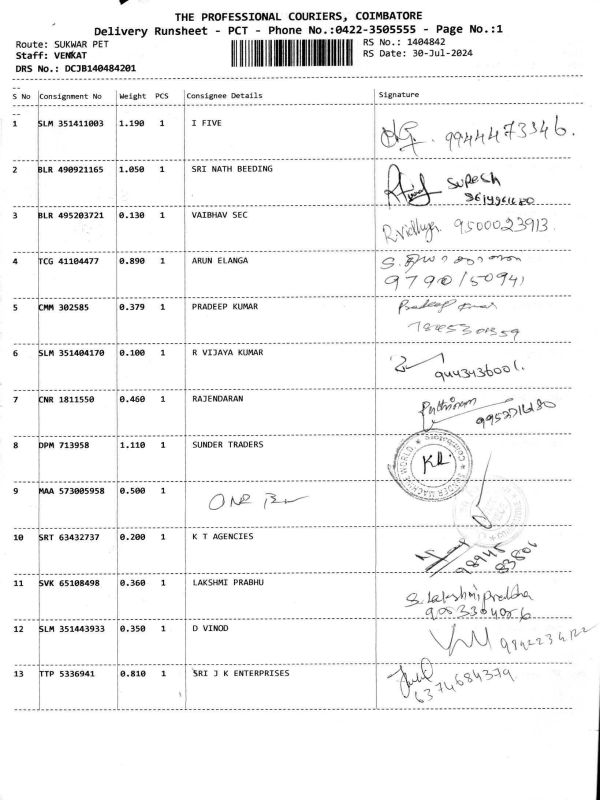 THE PROFESSIONAL COURIERS, COIMBATORE
Delivery Runsheet - PCT - Phone No.:0422-3505555 - Page No.:1
Route: SUKWAR PET RS No.: 1404842
Staff: VENKAT RS Date: 30-Jul-2024
DRS No.: DCJB140484201
S No Consignment No Weight PCS Consignee Details Signature
1 SLM 351411003 1.190 1 I FIVE 9944473346.
2 BLR 490921165 1.050 1 SRI NATH BEEDING SURESH
3 BLR 495203721 0.130 1 VAIBHAV SEC R.Vidhya 9500023913
4 TCG 41104477 0.890 1 ARUN ELANGA
9790150941
5 CMM 302585 0.379 1 PRADEEP KUMAR Pradeep Kumar
6 SLM 351404170 0.100 1 R VIJAYA KUMAR 9443436001.
7 CNR 1811550 0.460 1 RAJENDARAN
8 DPM 713958 1.110 1 SUNDER TRADERS
9 MAA 573005958 0.500 1
10 SRT 63432737 0.200 1 K T AGENCIES 98945
83806
11 SVK 65108498 0.360 1 LAKSHMI PRABHU S. Lakshmi Prabha
12 SLM 351443933 0.350 1 D VINOD
13 TTP 5336941 0.810 1 SRI J K ENTERPRISES
6374684379